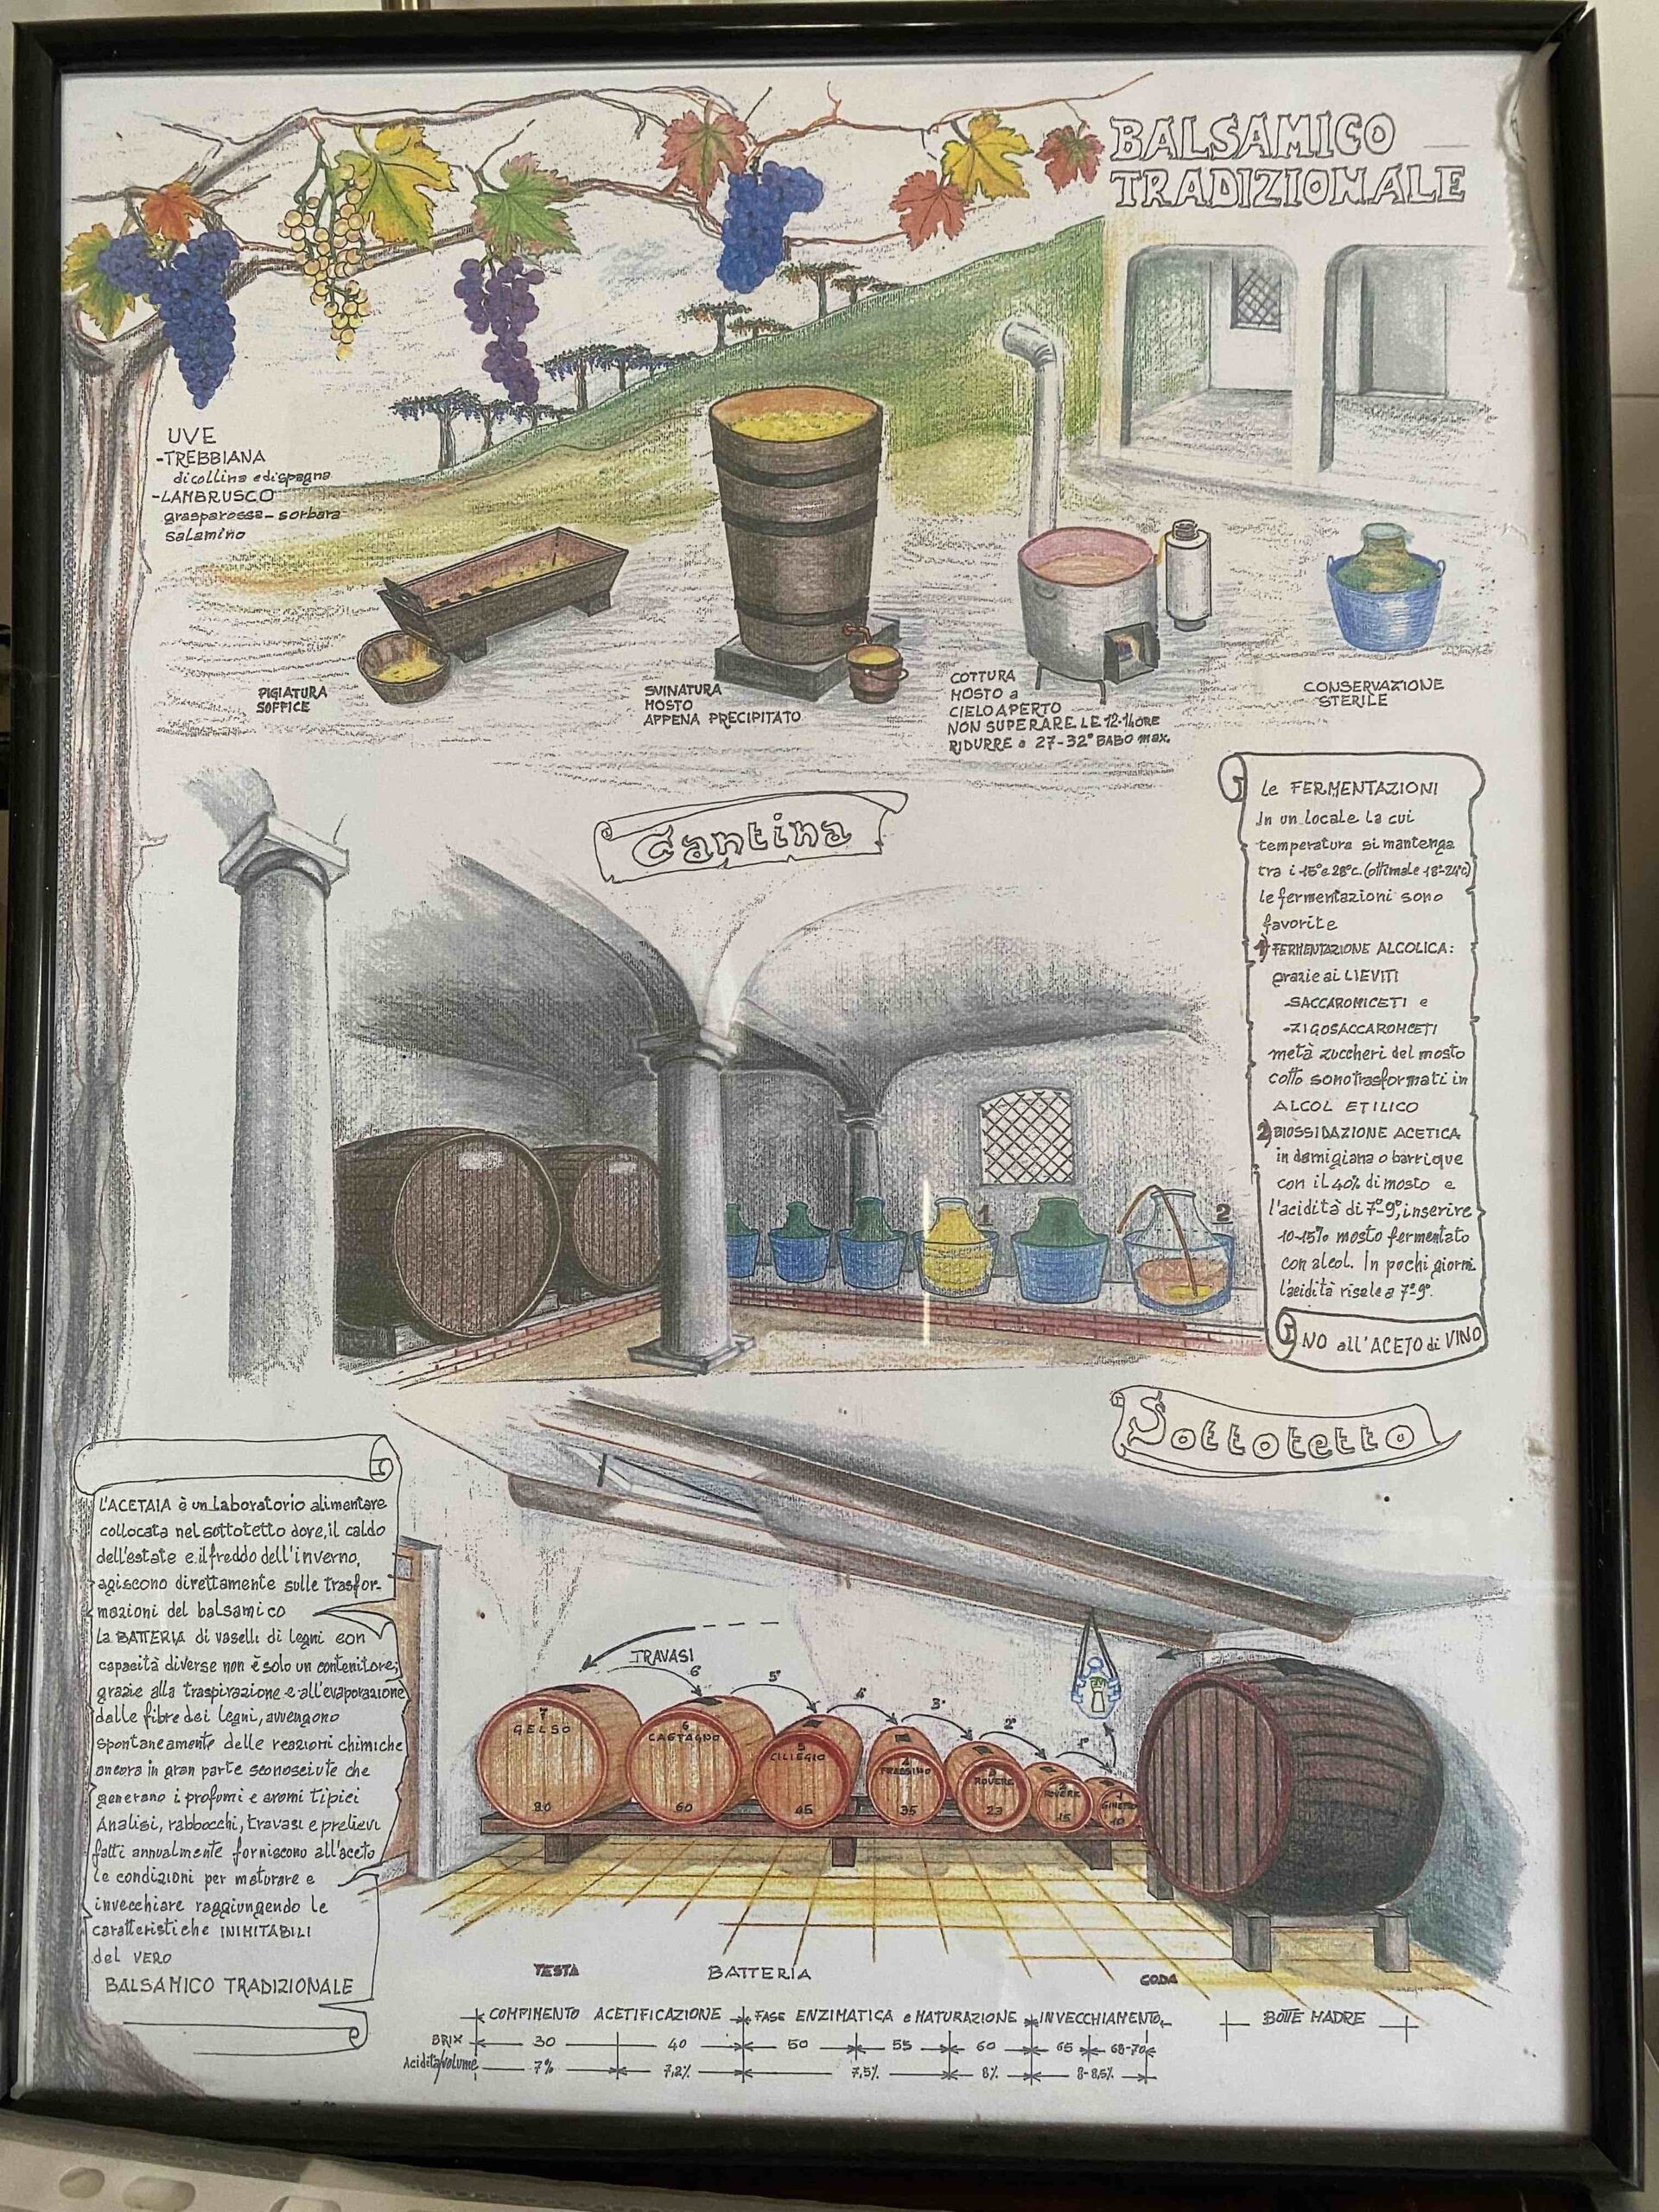 BALSAMICO
TRADIZIONALE
UVE
-TREBBIANA
di collina e di spagna
-LAMBRUSCO
grasparossa-sorbara
salamino
PIGIATURA
SOFFICE
SVINATURA
MOSTO
APPENA PRECIPITATO
COTTURA
MOSTO a
CIELO APERTO
NON SUPERARE LE 12-14 ORE
RIDURRE a 27-32° BABO max.
CONSERVAZIONE
STERILE
Cantina
Le FERMENTAZIONI
In un locale la cui
temperatura si mantenga
tra i 15° e 28°c. (ottimale 18°-24°c)
le fermentazioni sono
favorite
1) FERMENTAZIONE ALCOLICA:
grazie ai LIEVITI
-SACCAROMICETI e
-ZIGOSACCAROMICETI
metà zuccheri del mosto
cotto sono trasformati in
ALCOL ETILICO
2) BIOSSIDAZIONE ACETICA
in damigiana o barrique
con il 40% di mosto e
l'acidità di 7°-9°, inserire
10-15% mosto fermentato
con alcol. In pochi giorni
l'acidità risale a 7°-9°.
NO all'ACETO di VINO
1
2
Sottotetto
L'ACETAIA è un Laboratorio alimentare
collocata nel sottotetto dove, il caldo
dell'estate e il freddo dell'inverno,
agiscono direttamente sulle trasfor-
mazioni del balsamico
La BATTERIA di vaselli di legni con
capacità diverse non è solo un contenitore;
grazie alla traspirazione e all'evaporazione
dalle fibre dei legni, avvengono
spontaneamente delle reazioni chimiche
ancora in gran parte sconosciute che
generano i profumi e aromi tipici
Analisi, rabbocchi, travasi e prelievi
fatti annualmente forniscono all'aceto
le condizioni per maturare e
invecchiare raggiungendo le
caratteristiche INIMITABILI
del VERO
BALSAMICO TRADIZIONALE
TRAVASI
6° 5° 4° 3° 2° 1°
7 GELSO 80
6 CASTAGNO 60
5 CILIEGIO 45
4 FRASSINO 35
3 ROVERE 23
2 ROVERE 15
1 GINEPRO 10
TESTA BATTERIA CODA
COMPIMENTO ACETIFICAZIONE FASE ENZIMATICA e MATURAZIONE INVECCHIAMENTO BOTTE MADRE
BRIX 30 40 50 55 60 65 68-70
Acidità/volume 7% 7,2% 7,5% 8% 8-8,5%